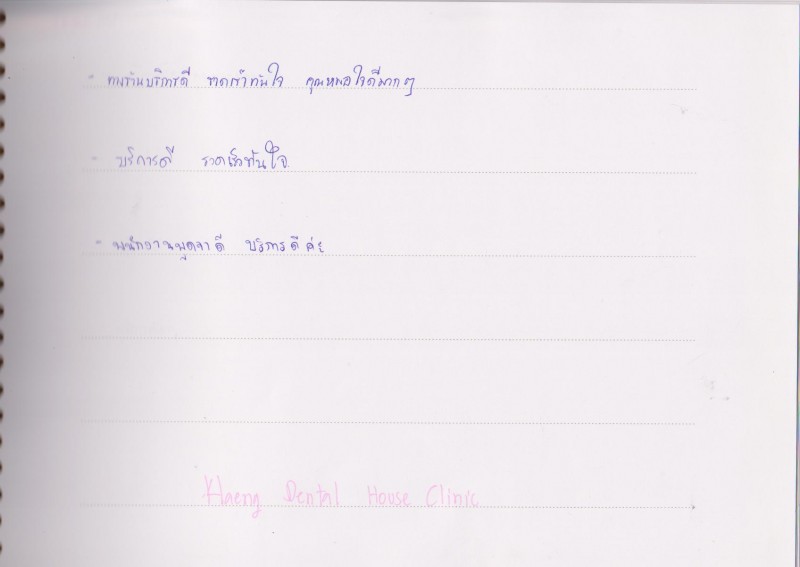 - ทางร้านบริการดี รวดเร็วทันใจ คุณหมอใจดีมากๆ
- บริการดี รวดเร็วทันใจ
- พนักงานพูดจาดี บริการดีค่ะ
Haeng Dental House Clinic